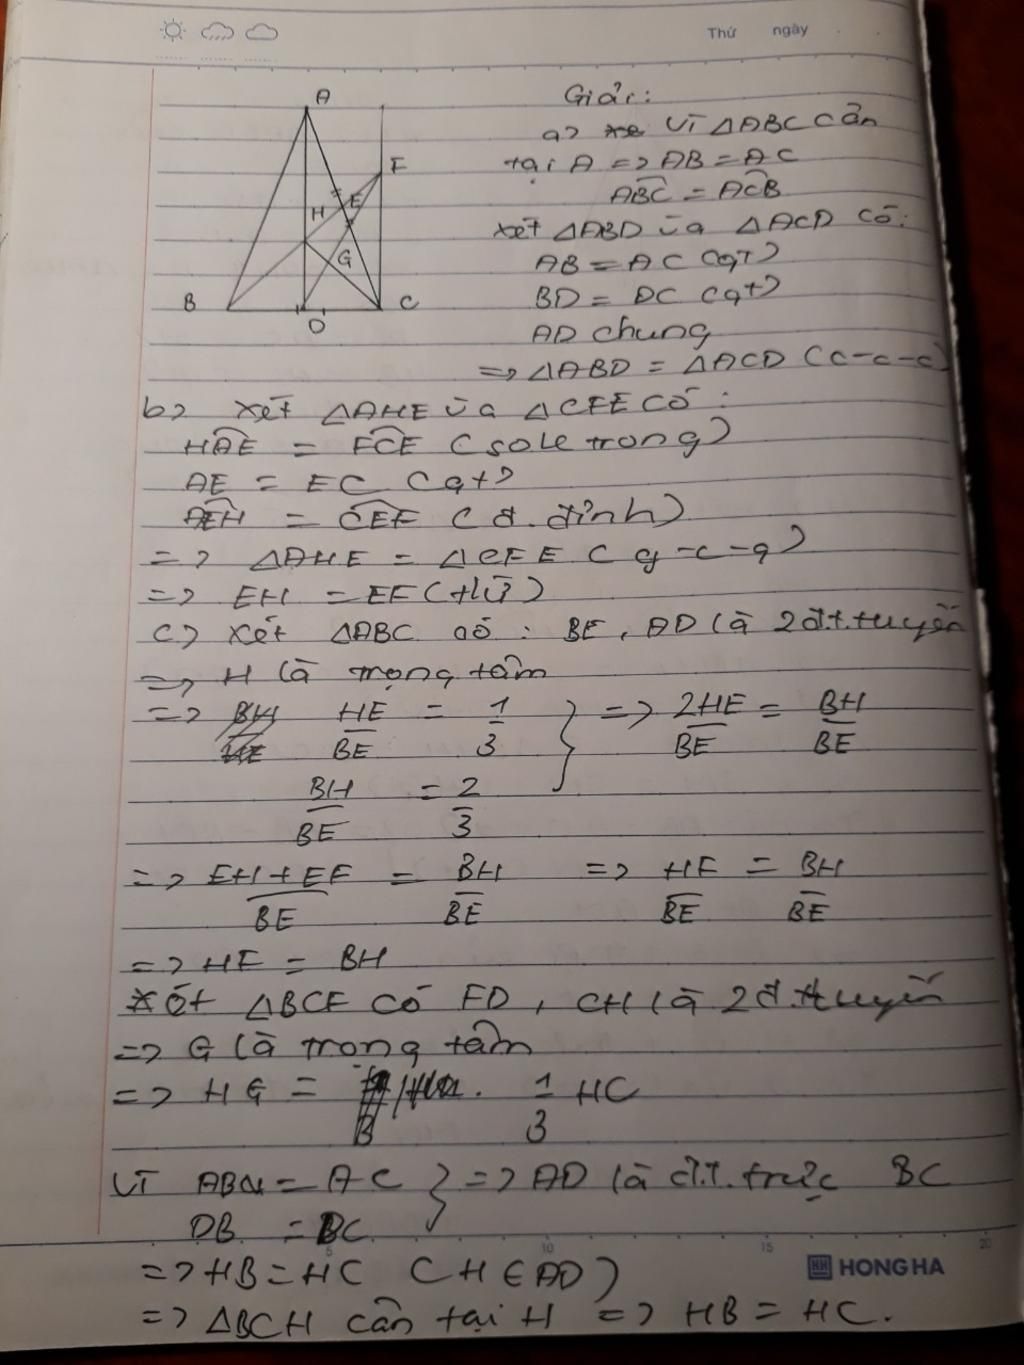 Thứ ngày
A
F
H E
G
B C
D
Giải:
a> Vì △ABC cân
tại A => AB = AC
ABC = ACB
xét △ABD và △ACD có:
AB = AC (gt)
BD = DC (gt)
AD chung
=> △ABD = △ACD (c-c-c)
b> xét △AHE và △CFE có:
HAE = FCE (sole trong)
AE = EC (gt)
AEH = CEF (đ.đỉnh)
=> △AHE = △CFE (g-c-g)
=> EH = EF (tứ)
c> xét △ABC có: BE, AD là 2 đ.t.tuyến
=> H là trọng tâm
=> HE/BE = 1/3 } => 2HE/BE = BH/BE
BH/BE = 2/3
=> EH+EF/BE = BH/BE => HF/BE = BH/BE
=> HF = BH
Xét △BCF có FD, CH là 2 đ.t.tuyến
=> G là trọng tâm
=> HG = 1/3 HC
Vì AB = AC } => AD là đ.t.trực BC
DB = DC
=> HB = HC (H ∈ AD)
=> △BCH cân tại H => HB = HC.
5 10 15 20
HH HONG HA